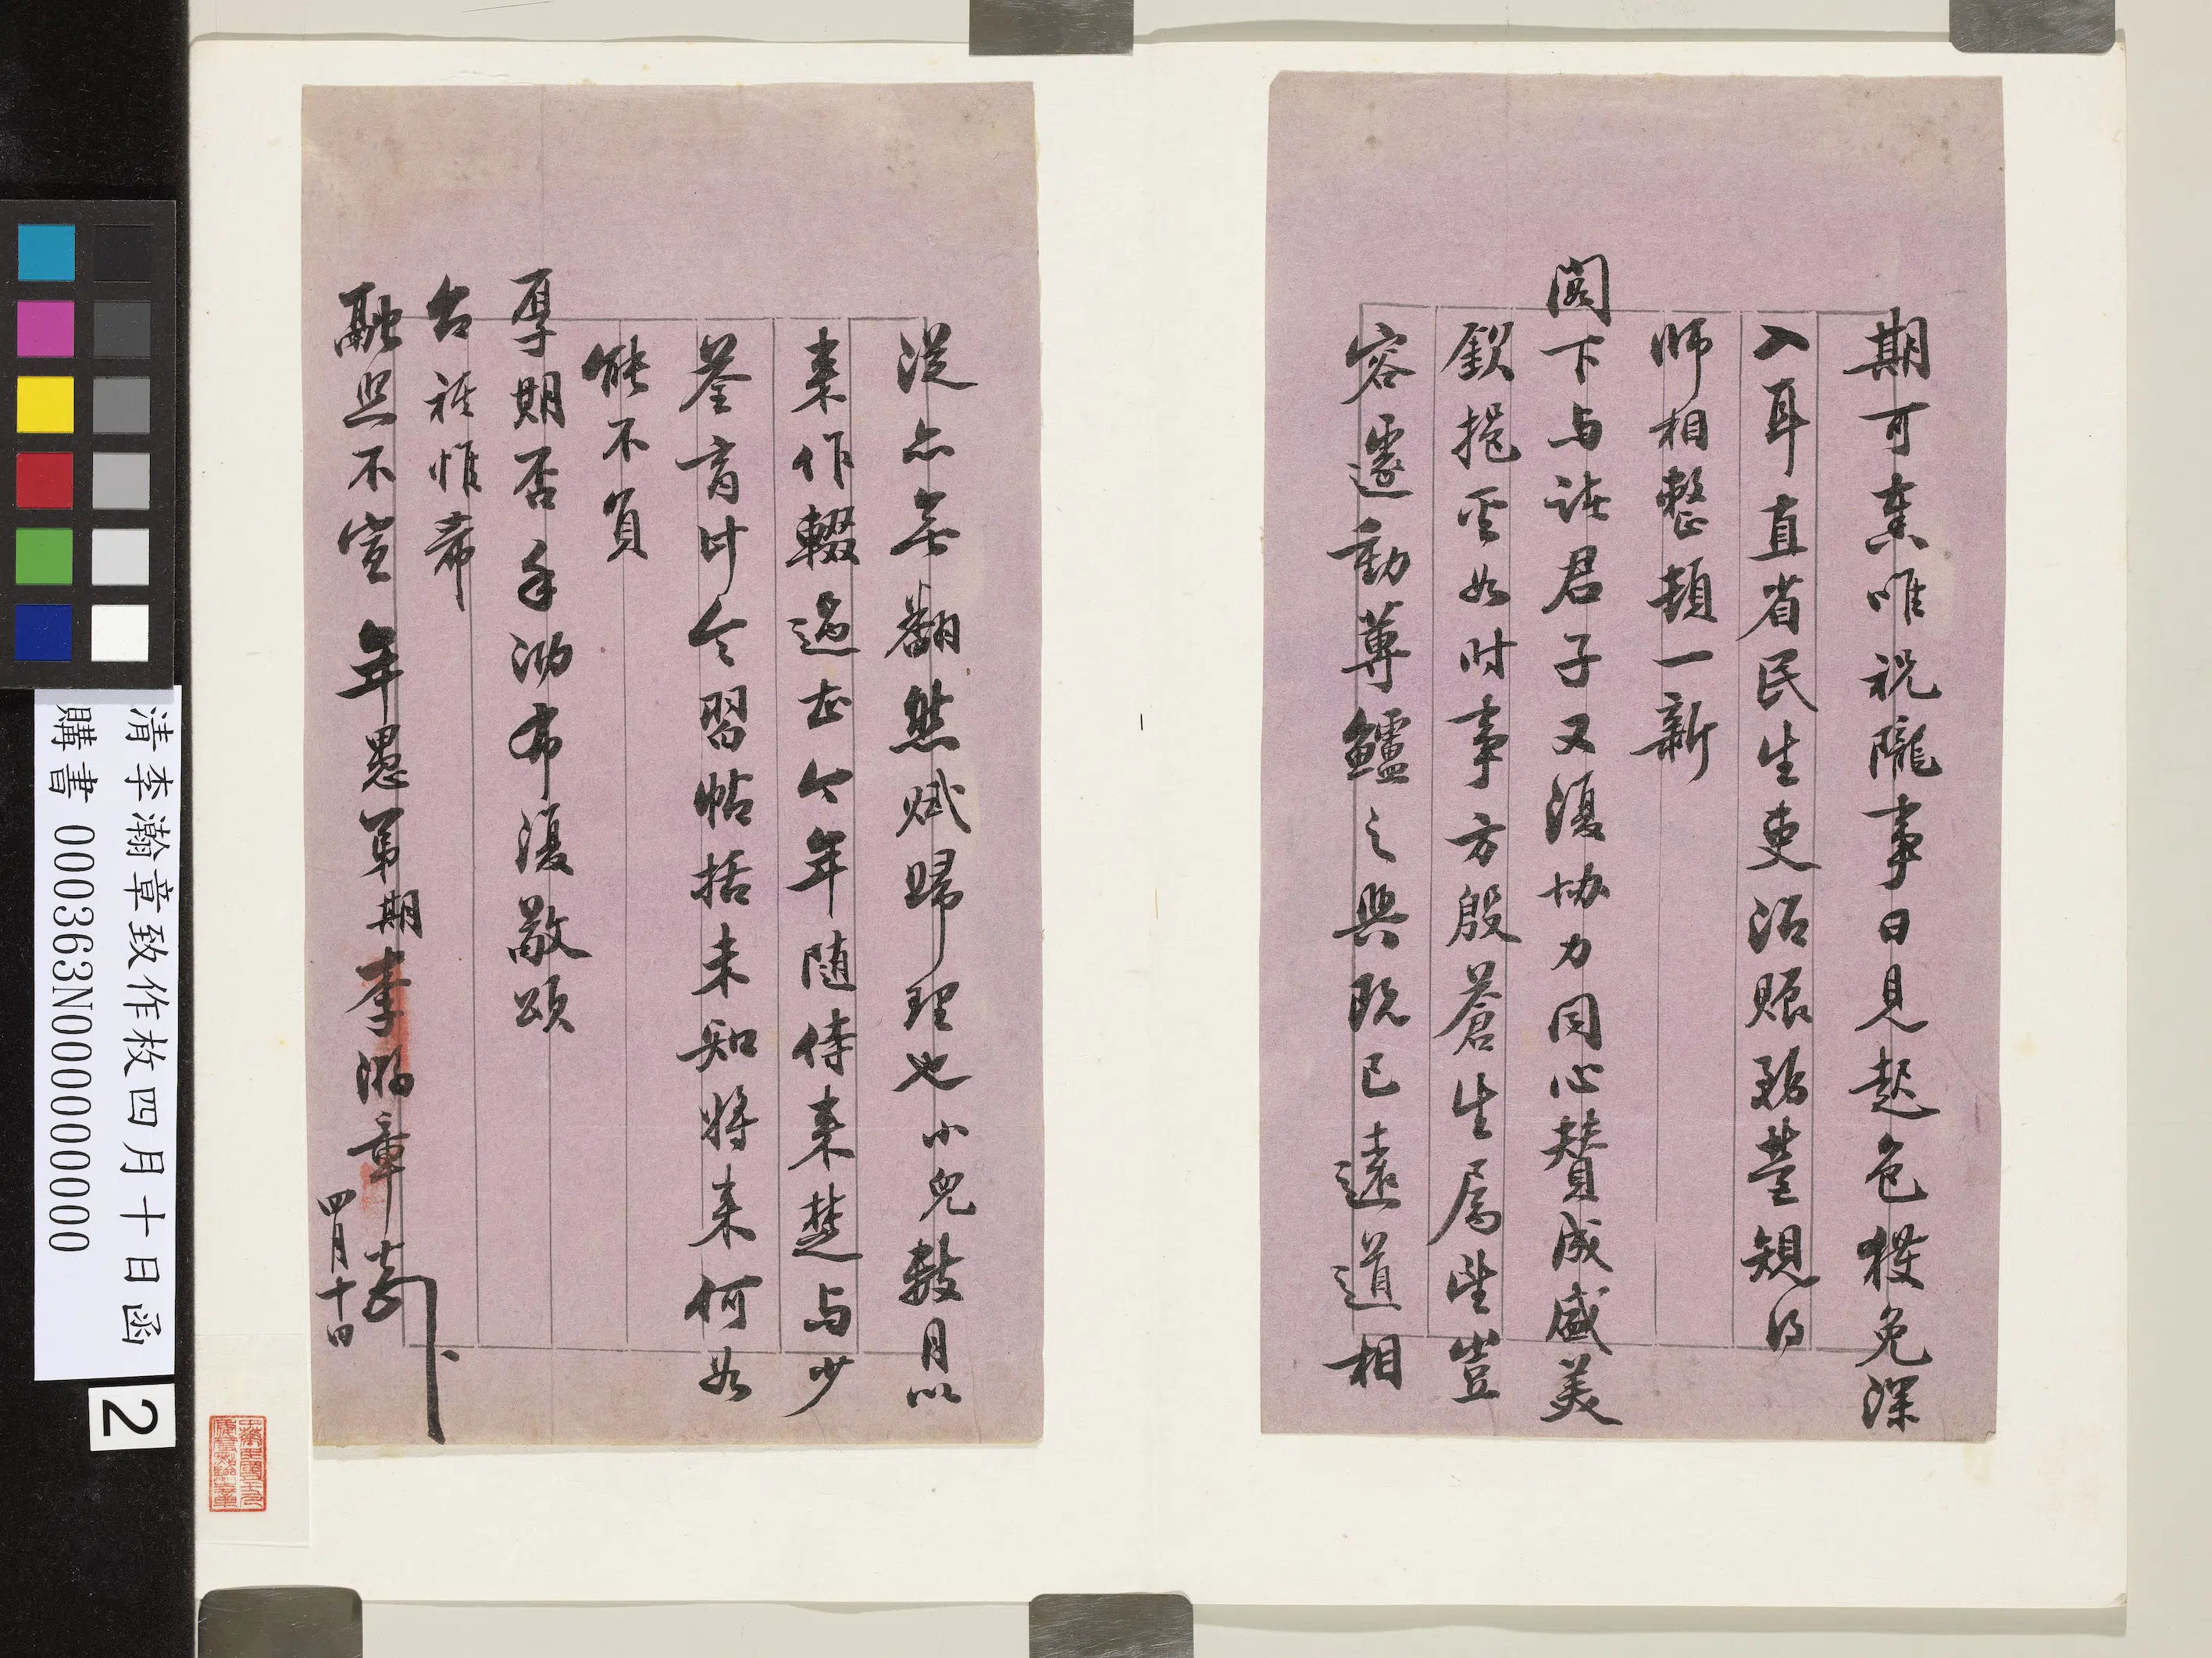 期可索唯祝隴事日見起色獲免深
入耳直省民生吏治賑務荃規得
師相整頓一新
閣下与諸君子又復協力同心贊成盛美
欽挹奚如時事方殷蒼生屬望豈
容遽動蓴鱸之興既已遠道相
從亦無翻然賦歸理也小兒數月以
來作輟過去今年隨侍來楚与少
荃肓計令習帖括未知將來何如
能不負
厚期否手泐布復敬頌
台祺惟希
融照不宣 年愚弟期李瀚章頓首
四月十日
清李瀚章致作枚四月十日函
購書 000363N000000000
2